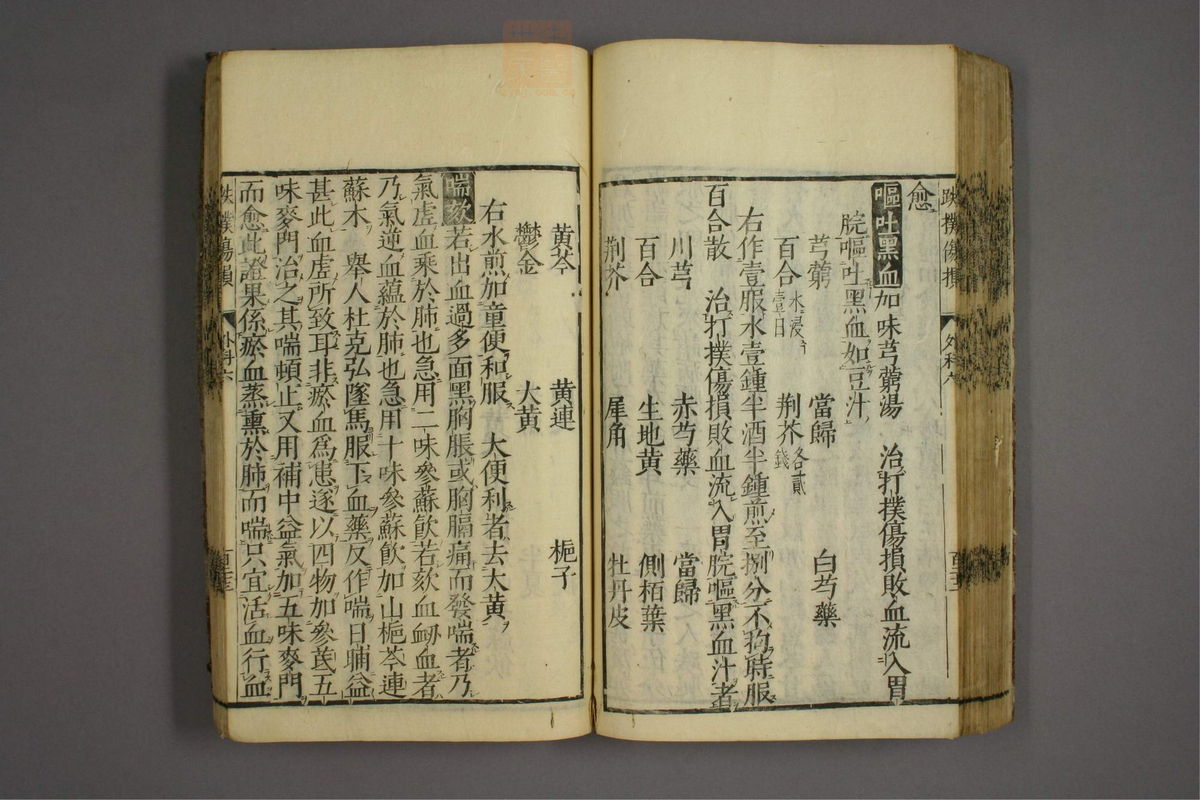 跌撲傷損
外科六
愈
嘔吐黑血加味芎藭湯　治打撲傷損敗血流入胃
脘嘔吐黑血如豆汁
芎藭　當歸　白芍藥
百合水浸壹日　荆芥各貳錢
右作壹服水壹鍾半酒半鍾煎至捌分不拘時服
百合散　治打撲傷損敗血流入胃脘嘔黑血汁者
川芎　赤芍藥　當歸
百合　生地黄　側栢葉
荆芥　犀角　牡丹皮
黄芩　黄連　梔子
鬱金　大黄
右水煎加童便和服　大便利者去大黄
喘欬若出血過多面黑胸脹或胸膈痛而發喘者乃
氣虛血乘於肺也急用二味參蘇飮若欬血衂血者
乃氣逆血蘊於肺也急用十味參蘇飮加山梔芩連
蘇木　舉人杜克弘墜馬服下血藥反作喘日晡益
甚此血虛所致耳非瘀血爲患遂以四物加參芪五
味麥門治之其喘頓止又用補中益氣加五味麥門
而愈此證果係瘀血蒸熏於肺而喘只宜活血行血
跌撲傷損
外科六